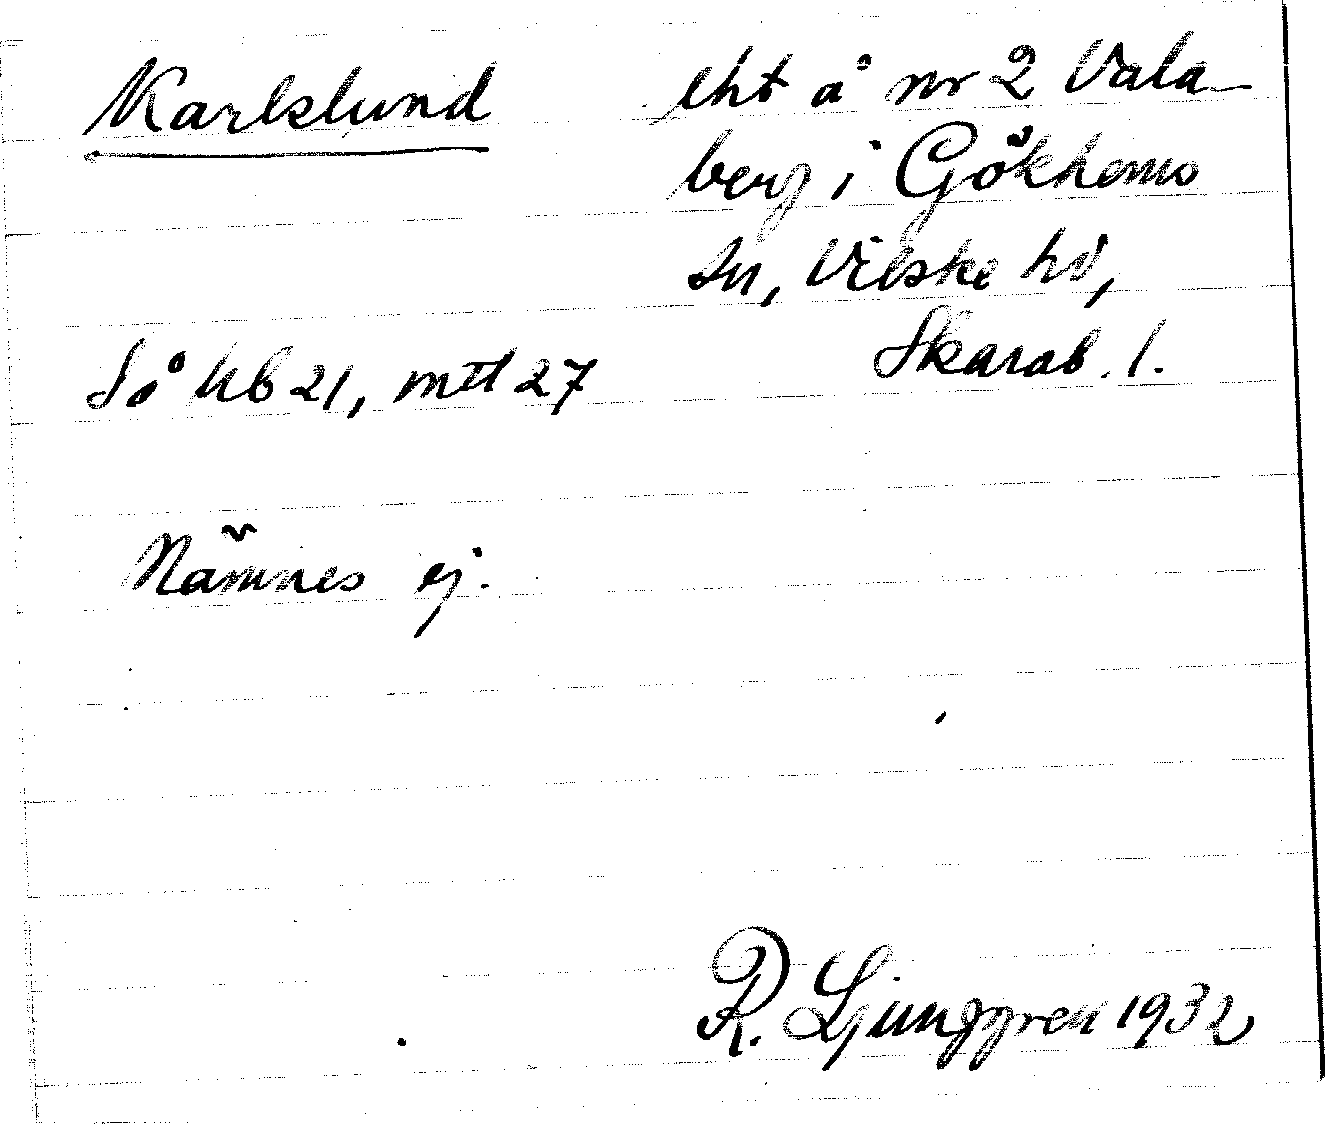 Karlslund
lht å nr 2 Vala-
berg i Gökhems
sn, Vilske hd,
Skarab. l.
Så hb 21, mtl 27
Nämnes ej.
R. Ljunggren 1932